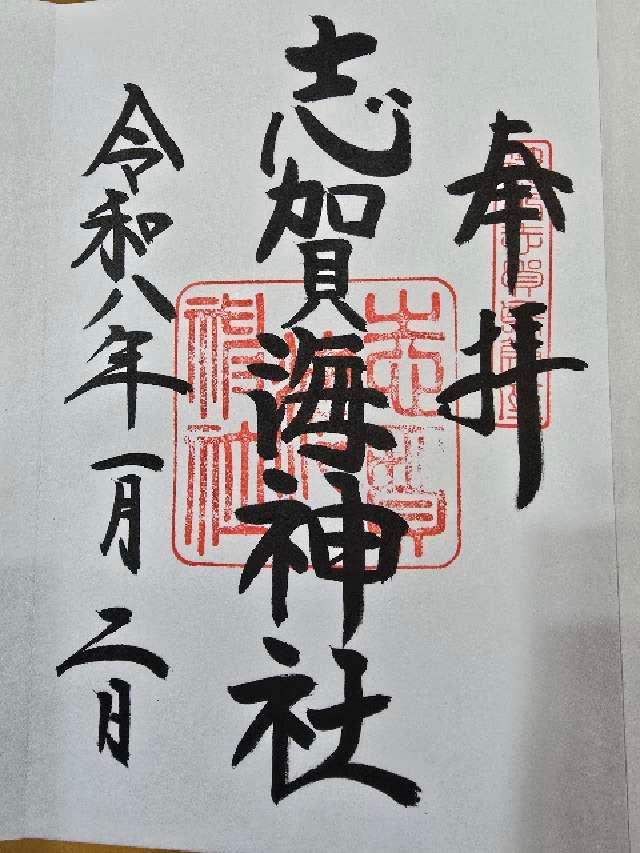 奉拝
志賀海神社
令和八年一月二日
志賀海神社